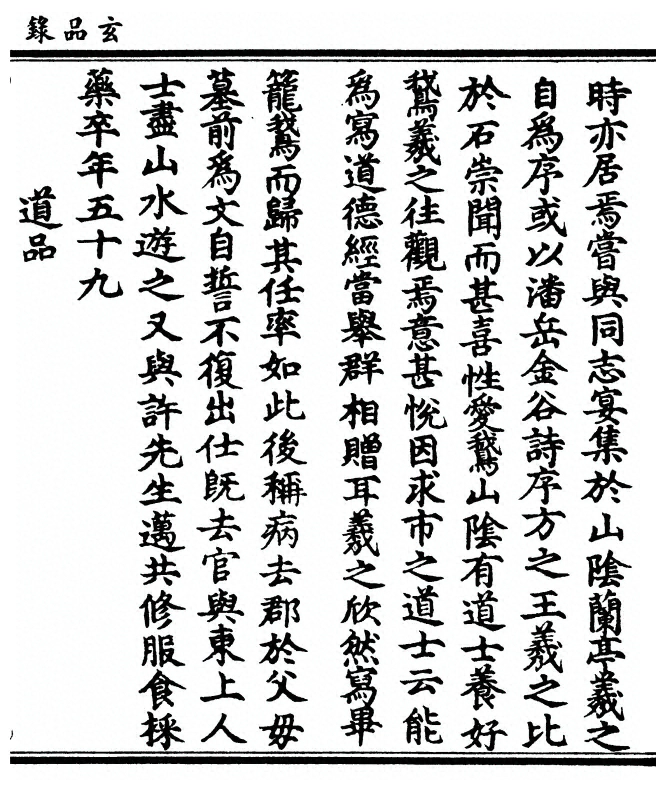 玄品錄
時亦居焉嘗與同志宴集於山陰蘭亭羲之
自為序或以潘岳金谷詩序方之王羲之比
於石崇聞而甚喜性愛鵞山陰有道士養好
鵞羲之往觀焉意甚悅因求市之道士云能
為寫道德經當舉群相贈耳羲之欣然寫畢
籠鵞而歸其任率如此後稱病去郡於父毋
墓前為文自誓不復出仕既去官與東上人
士盡山水遊之又與許先生邁共修服食採
藥卒年五十九
道品